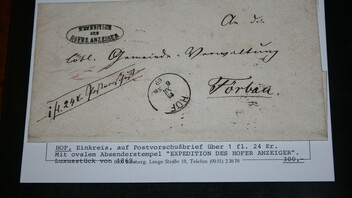 EXPEDITION
DES
HOFER ANZEIGER
An die
löbl. Gemeinde-Verwaltung
Förbau
1 fl. 24 x Postvorschuß
HOF
HOF, Einkreis, auf Postvorschußbrief über 1 fl. 24 Kr.
Mit ovalem Absenderstempel "EXPEDITION DES HOFER ANZEIGER".
Luxusstück von 1863.
300,-
Lange Straße 18, Telefon